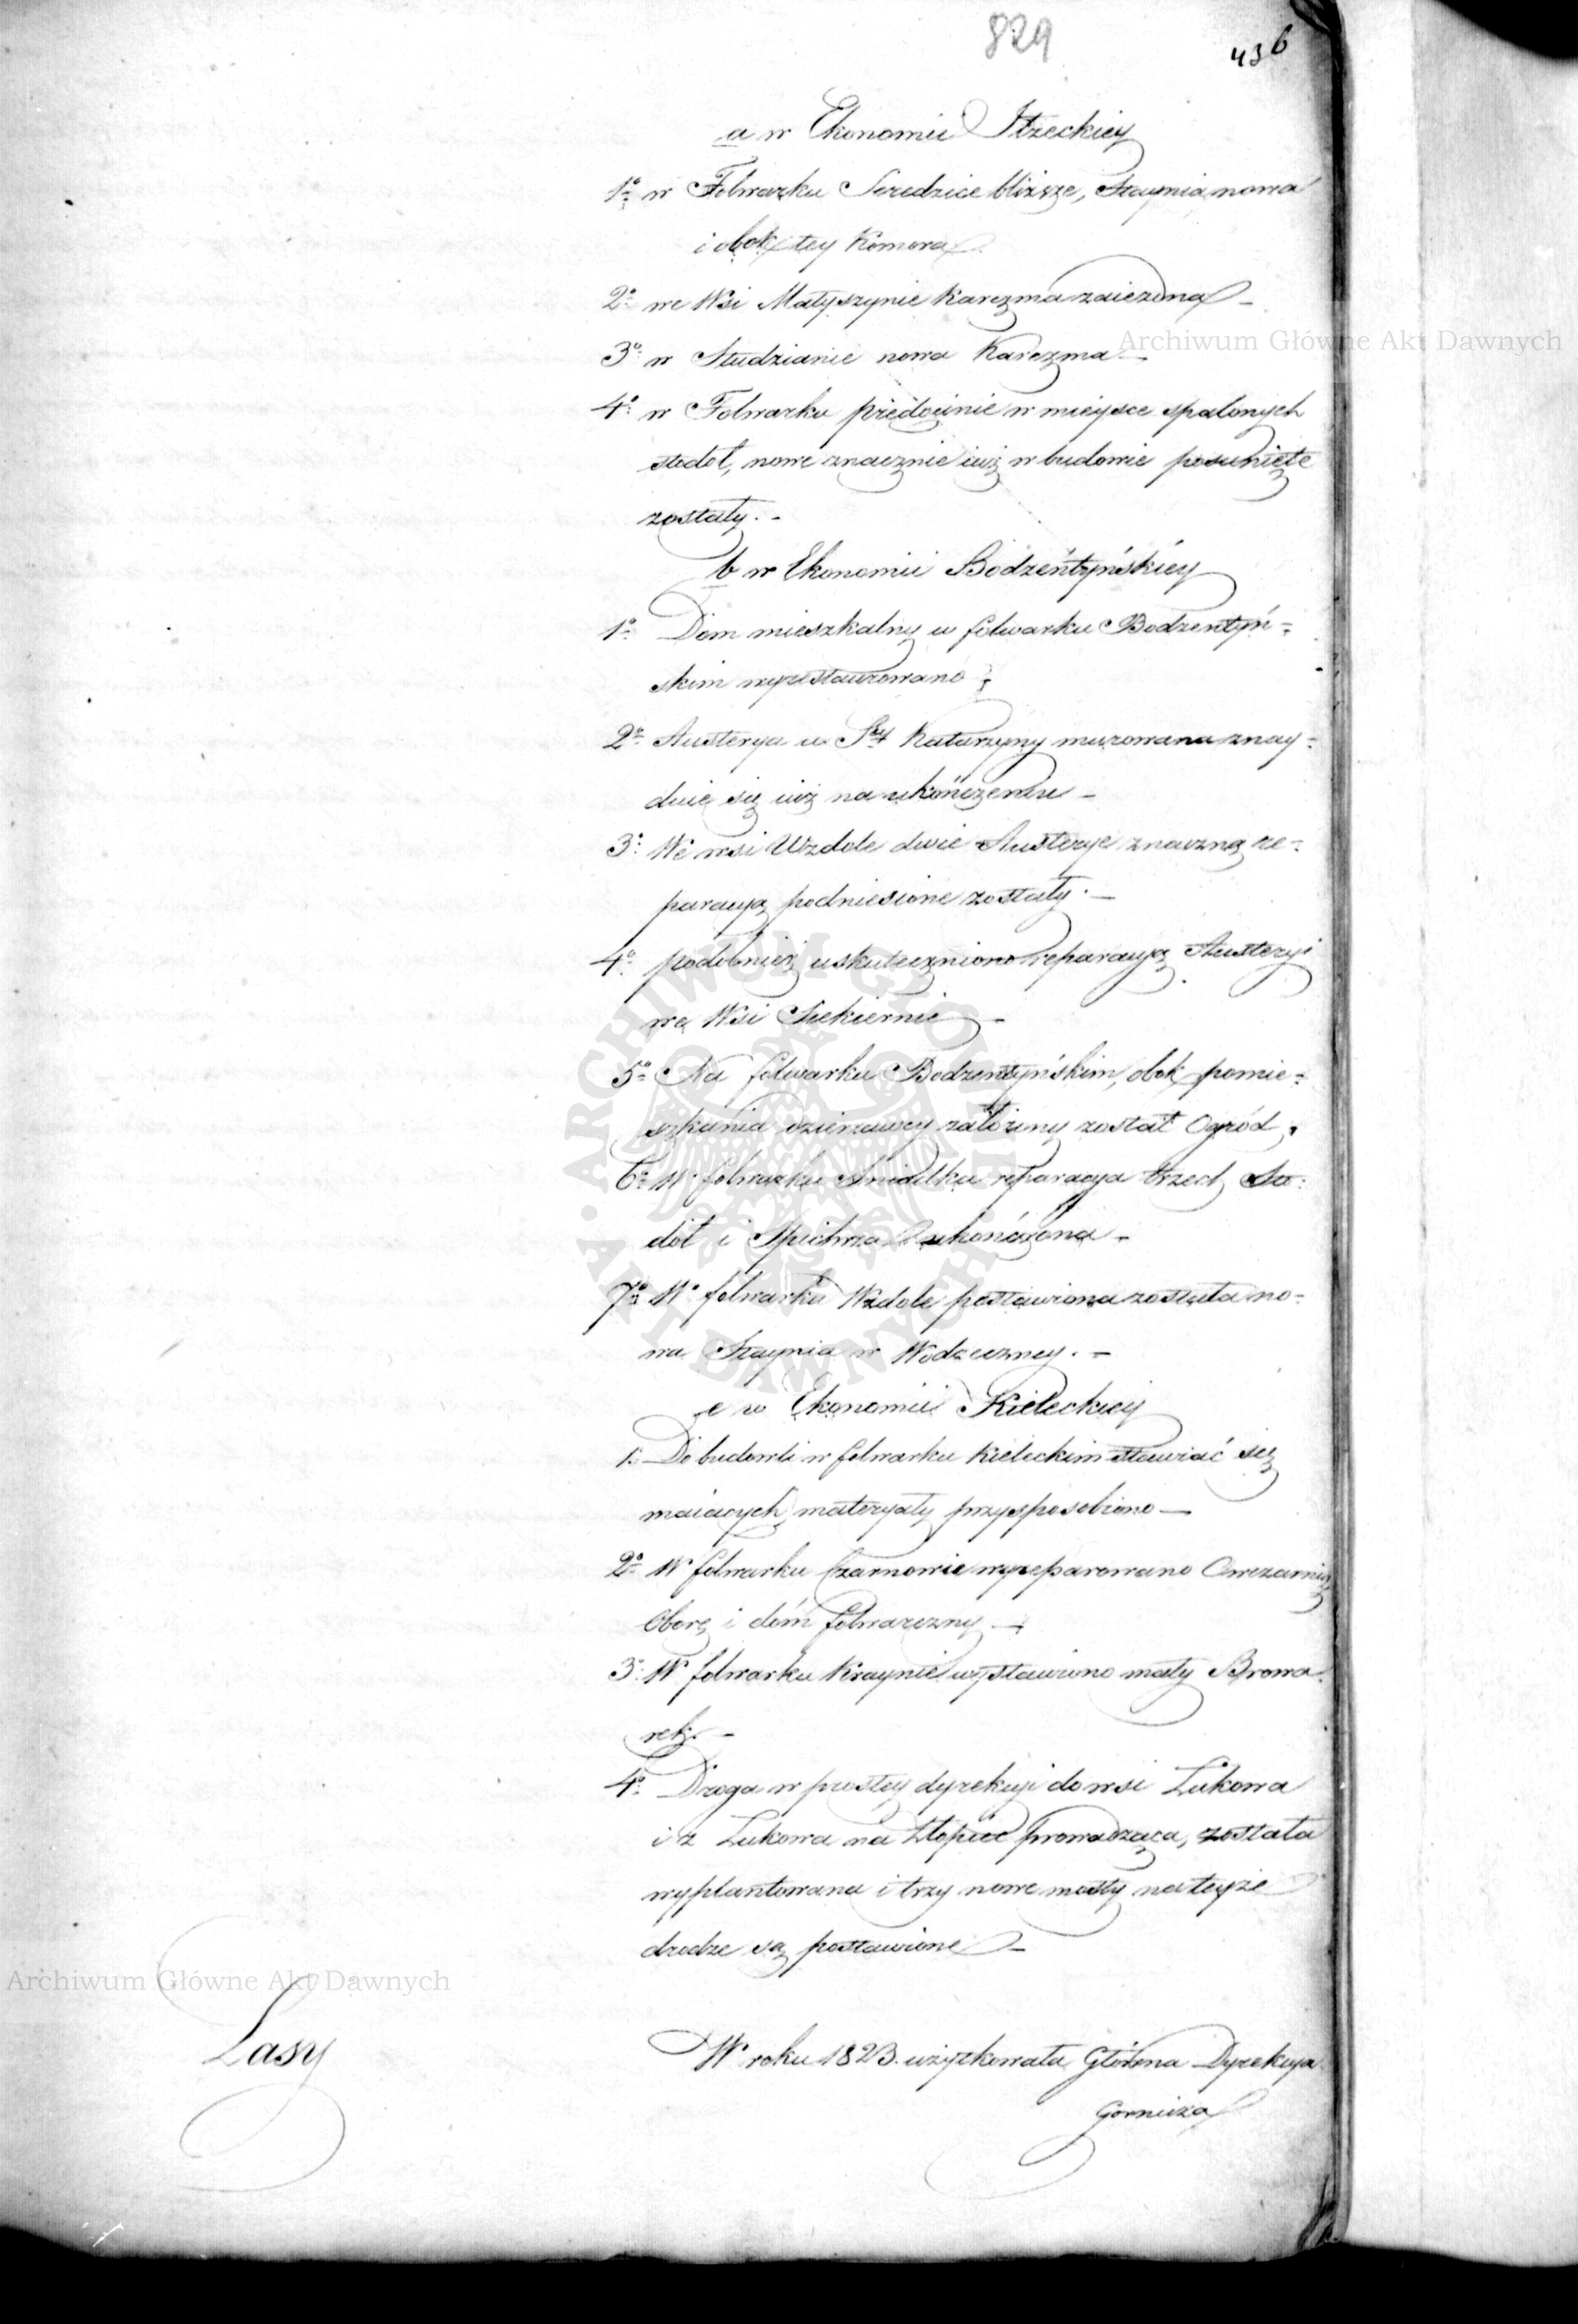 829
436
a w Ekonomii Iłzeckiey
1º w Folwarku Seredzice bliższe, Staynia nowa
i obok tey Komora
2º we Wsi Małyszynie Karczma zaiezdna –
3º w Studzianie nowa Karczma –
4º w Folwarku w mieysce spalonych
stodoł, nowe znacznie iuż w budowie posunięte
zostały. –
b w Ekonomii Bodzentyńskiey
1º Dom mieszkalny w folwarku Bodzentyń=
skim wyrestaurowano;
2º Austerya u Stey Katarzyny murowana znay=
duie się iuż na ukończeniu –
3º We wsi Wzdole dwie Austerye znaczną re=
paracyą podniesione zostały. –
4º podobnież uskuteczniono reparacyą Austeryi
we Wsi Siekiernie –
5º Na folwarku Bodzentyńskim, obok pomie=
szkania dzierzawcy założony został Ogród,
6º W folwarku reparacya trzech Sto=
dół i Spichrza ukończona –
7º W folwarku Wzdole postawiona została no=
wa Staynia w Wodzeczney. –
c w Ekonomii Kieleckiey
1. Do budowli w folwarku Kieleckim stawiać się
maiących, materyały przysposobiono –
2º W folwarku Czarnowie wyreparowano Owczarnią
Oborę i dóm folwarczny –
3. W folwarku Kraynie wystawiono mały Browa=
rek. –
4º Droga w prostey dyrekcyi do wsi Łukowa
i z Łukowa na prowadząca, została
wyplantowana i trzy nowe mosty na teyże
drodze są postawione –
Lasy
W roku 1823. użytkowała Główna Dyrekcya
Gornicza
Archiwum Główne Akt Dawnych
Archiwum Główne Akt Dawnych
ARCHIWUM GŁÓWNE AKT DAWNYCH